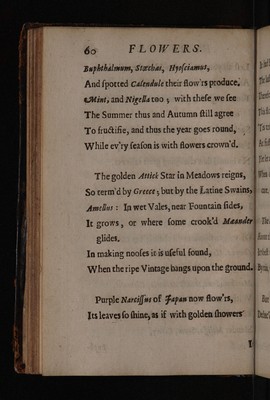 60 FLOWERS.
Buphthalmum, Stæchas, Hyosciamus,
And spotted Calendule their flow'rs produce.
Mint, and Nigella too; with these we see
The Summer thus and Autumn still agree
To fructifie, and thus the year goes round,
While ev'ry season is with flowers crown'd.
The golden Attick Star in Meadows reigns,
So term'd by Greece; but by the Latine Swains,
Amellus: In wet Vales, near Fountain sides,
It grows, or where some crook'd Mæander
glides.
In making nooses it is useful found,
When the ripe Vintage hangs upon the ground.
Purple Narcissus of Japan now flow'rs,
Its leaves so shine, as if with golden showers